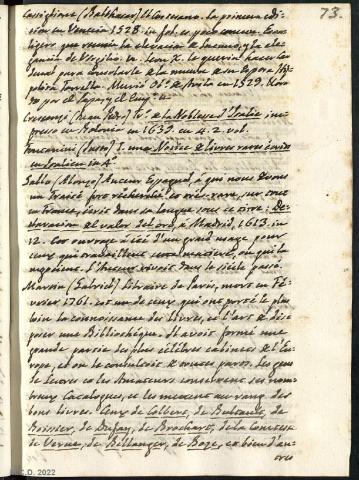 73.
Castiglione (Balthasar) El Cortesano. la primera edi-
sion en Venecia 1528. in fol. es poco comun. Esca-
ligero que reunia la elevacion de Lucano, y la ele-
gancia de Virgilio. el Leon X. le queria hacer Car-
denal para consolarle de la muerte de su Esposa Hip-
polita Torrella. Murió Obº de Avila en 1529. Hon-
ro por el Papa y el Empº.
Crescenzi (Juan Pedro) Tº de la Nobleza d'Italie im-
presso en Bolonia en 1639. en 4. 2. vol.
Fontanini (Justo) I. una Notice de livres rares écrits
en Italien in 4º.
Salla (Alonzo) Auteur Espagnol, à qui nous devons
un Traité fort recherché et très rare, sur tout
en France, écrit dans sa langue sous ce titre: De-
claracion del valor del oro, a Madrid, 1613. in
12. Cet ouvrage a été d'un grand usage pour
ceux qui travaillent cette matière, ou qui la
negocient. L'Auteur vivoit dans le siècle passé.
Martin (Gabriel) Libraire de Paris, mort en Fé-
vrier 1761. est un de ceux qui ont porté le plus
loin la connoissance des Livres, et l'art de dis-
poser une Bibliothèque. Il avoit formé une
grande partie des plus célèbres cabinets de l'Eu-
rope, et on le consultoit de toutes parts. Les gens
de Lettres et les Amateurs conservent ses nom-
breux Catalogues, et les mettent au rang des
bons livres. Ceux de Colbert, de Bulteau, de
Boissier, de Dufay, de Brochard, de la Comtesse
de Verrue, de Bellanger, de Boze, et bien d'au-
tres
C.D. 2022